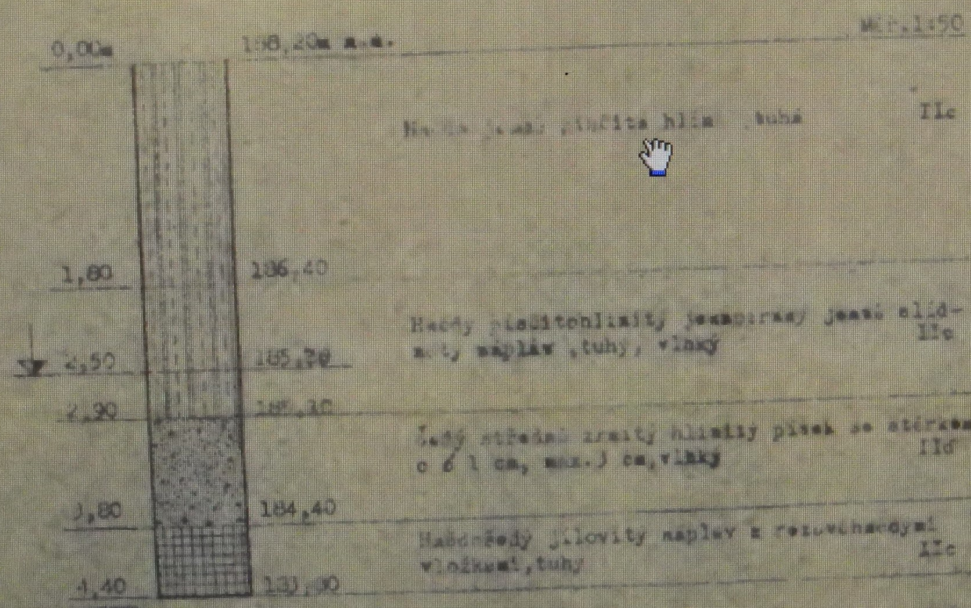 Měř.1:50
0,00m 188,20m n.m.
písčitá hlína tuhá IIc
1,80 186,40
Hnědý písčitohlinitý jemně slíd-
natý náplav ,tuhý, vlhký IIc
2,50 185,70
2,90 185,30
Šedý středně zrnitý hlinitý písek se štěrkem
o ø 1 cm, max.3 cm,vlhký IId
3,80 184,40
Hnědošedý jílovitý náplav s rezavohnědými
vložkami,tuhý IIc
4,40 183,80